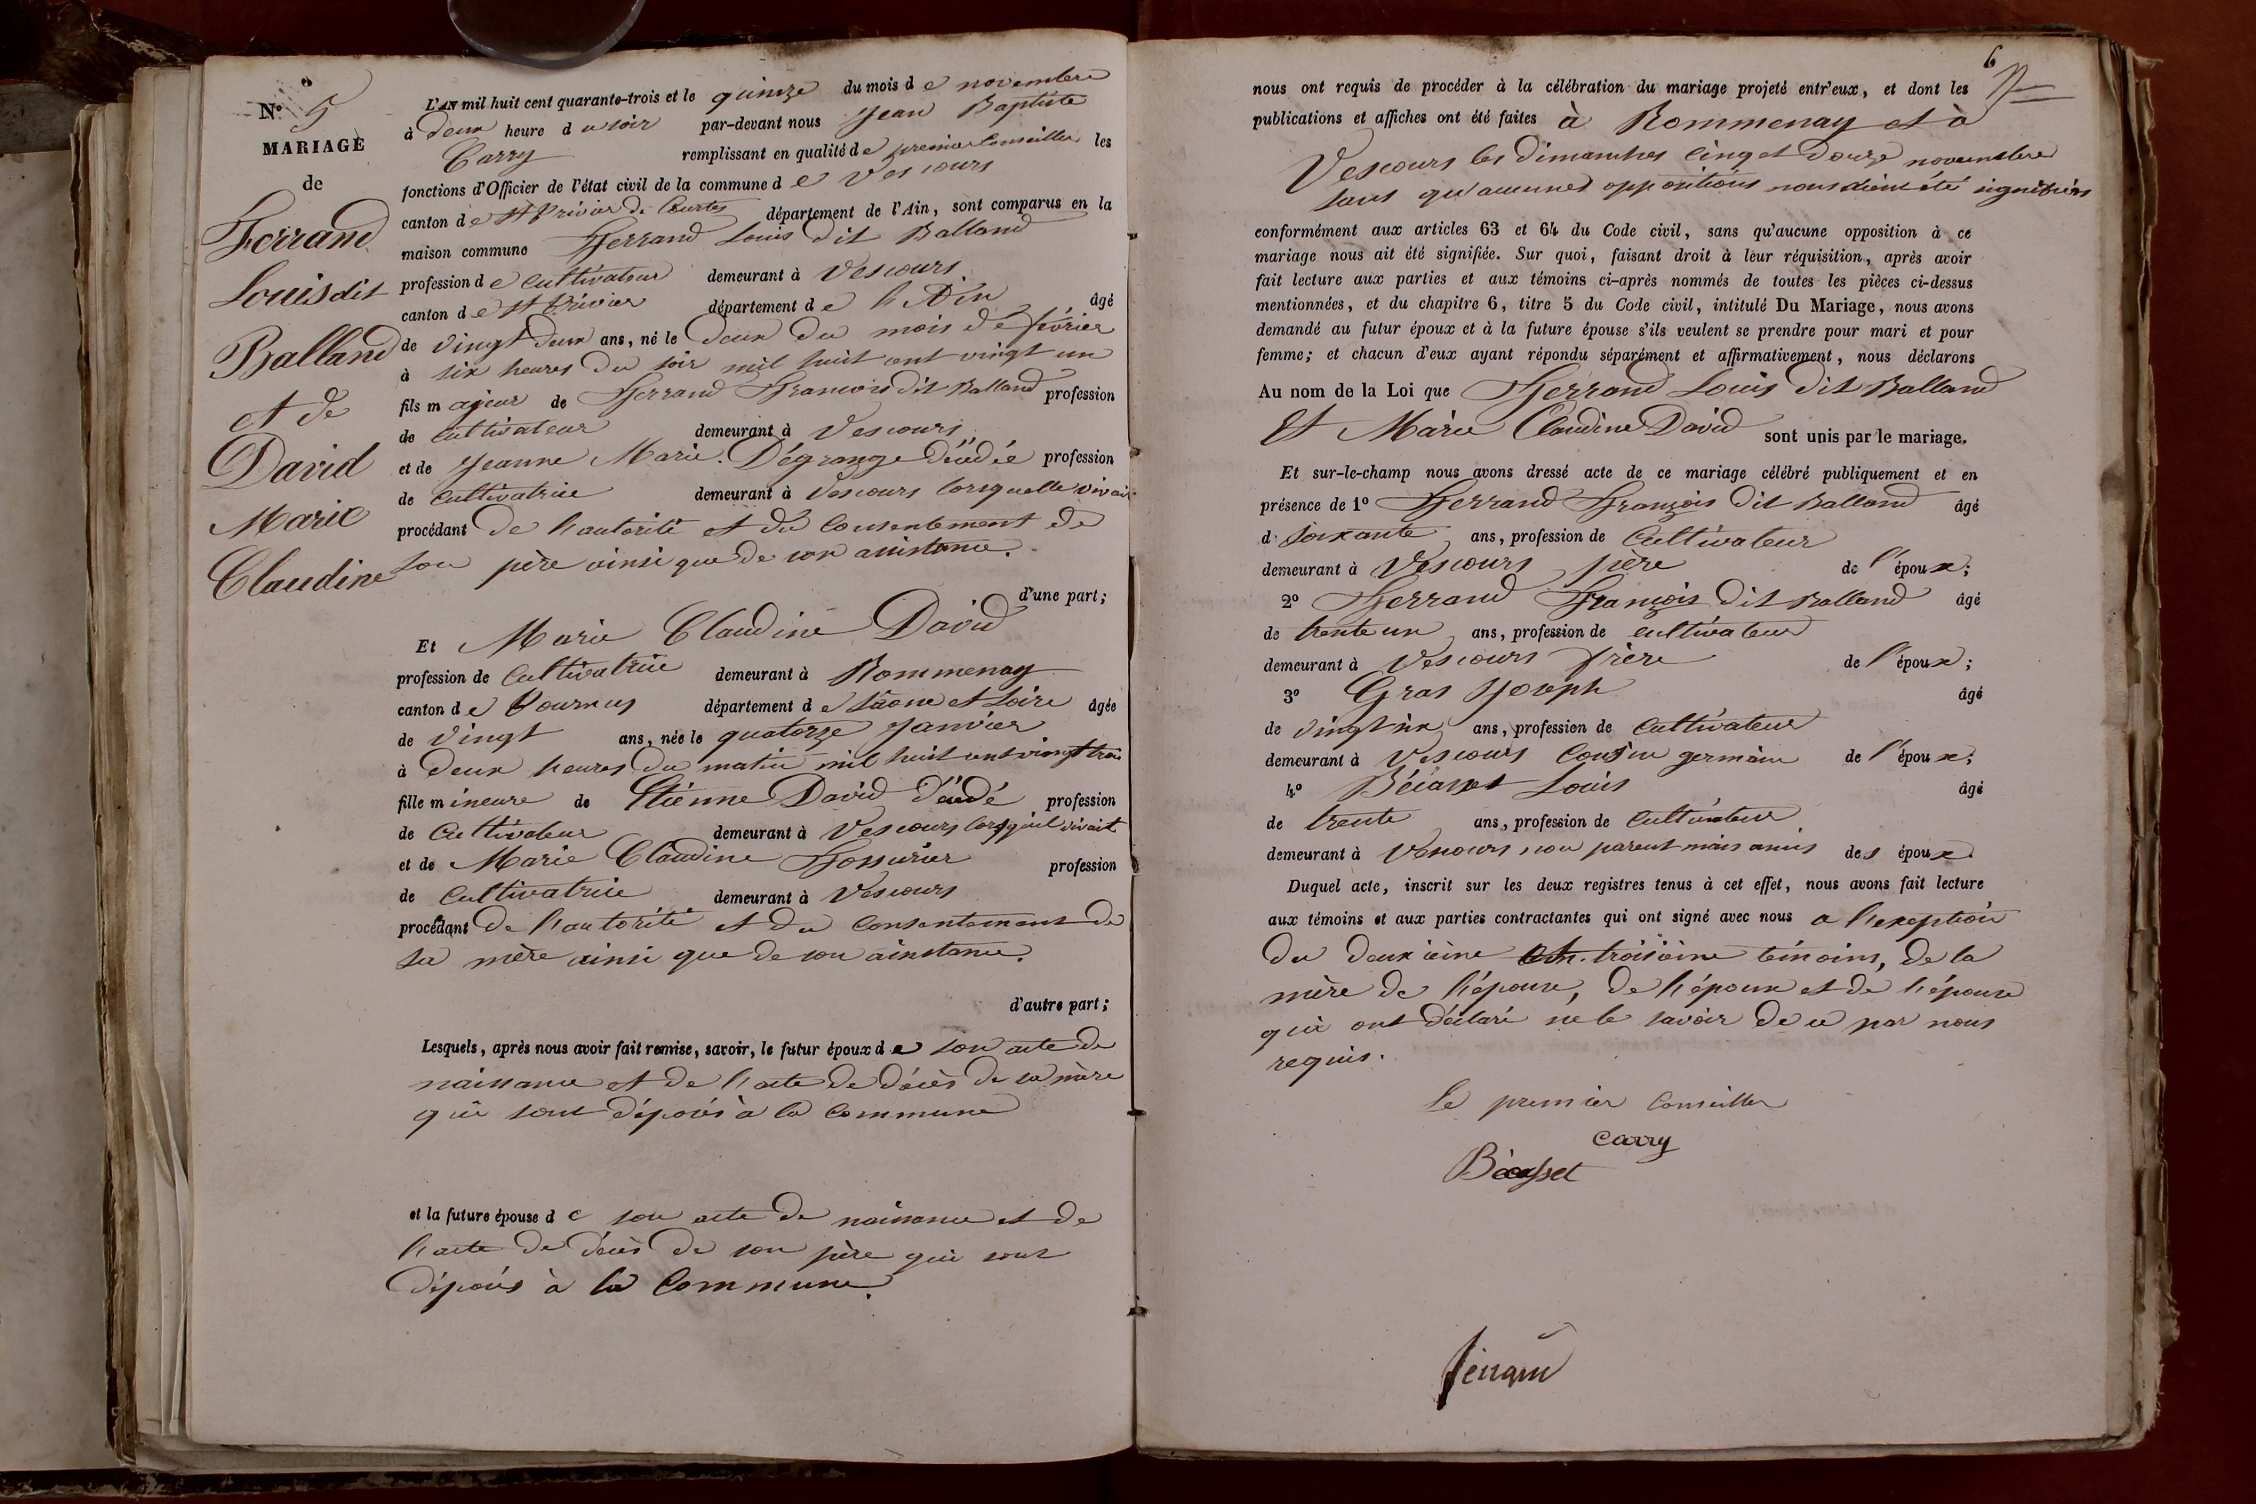 N° 5
MARIAGE
de
Ferrand
Louis dit
Balland
et de
David
Marie
Claudine
L'AN mil huit cent quarante-trois et le quinze du mois de novembre
à deux heure du soir par-devant nous Jean Baptiste
Carry remplissant en qualité de premier Conseiller les
fonctions d'Officier de l'état civil de la commune de Vescours
canton de St Trivier de Courtes département de l'Ain, sont comparus en la
maison commune Ferrand Louis dit Balland
profession de cultivateur demeurant à Vescours
canton de St Trivier département de l'Ain âgé
de vingt deux ans, né le deux du mois de février
à six heures du soir mil huit cent vingt un
fils majeur de Ferrand François dit Balland profession
de cultivateur demeurant à Vescours
et de Jeanne Marie Dégrange décédée profession
de cultivatrice demeurant à Vescours lorsquelle vivait
procédant de l'autorité et du Consentement de
son père ainsi que de son assistance.
d'une part;
Et Marie Claudine David
profession de cultivatrice demeurant à Rommenay
canton de Tournus département de Saône et Loire âgée
de vingt ans, née le quatorze Janvier
à deux heures du matin mil huit cent vingt trois
fille mineure de Etienne David décédé profession
de cultivateur demeurant à Vescours lorsquil vivait
et de Marie Claudine profession
de cultivatrice demeurant à Vescours
procédant de l'autorité et du Consentement de
sa mère ainsi que de son assistance.
d'autre part;
Lesquels, après nous avoir fait remise, savoir, le futur époux de son acte de
naissance et de l'acte de décès de sa mère
qui sont déposés à la Commune
et la future épouse de son acte de naissance et de
l'acte de décès de son père qui sont
déposés à la Commune.
6
nous ont requis de procéder à la célébration du mariage projeté entr'eux, et dont les
publications et affiches ont été faites à Rommenay et à
Vescours les dimanches cinq et douze novembre
sans qu'aucunes oppositions nous aient été signifiées
conformément aux articles 63 et 64 du Code civil, sans qu'aucune opposition à ce
mariage nous ait été signifiée. Sur quoi, faisant droit à leur réquisition, après avoir
fait lecture aux parties et aux témoins ci-après nommés de toutes les pièces ci-dessus
mentionnées, et du chapitre 6, titre 5 du Code civil, intitulé Du Mariage, nous avons
demandé au futur époux et à la future épouse s'ils veulent se prendre pour mari et pour
femme; et chacun d'eux ayant répondu séparément et affirmativement, nous déclarons
Au nom de la Loi que Ferrand Louis dit Balland
Et Marie Claudine David sont unis par le mariage.
Et sur-le-champ nous avons dressé acte de ce mariage célébré publiquement et en
présence de 1° Ferrand François dit Balland âgé
d soixante ans, profession de Cultivateur
demeurant à Vescours père de l'époux;
2° Ferrand François dit Balland âgé
de trente un ans, profession de cultivateur
demeurant à Vescours frère de l'époux;
3° Gras Joseph âgé
de vingt six ans, profession de cultivateur
demeurant à Vescours Cousin germain de l'époux;
4° Béasset Louis âgé
de trente ans, profession de Cultivateur
demeurant à Vescours non parent mais amis des époux.
Duquel acte, inscrit sur les deux registres tenus à cet effet, nous avons fait lecture
aux témoins et aux parties contractantes qui ont signé avec nous à l'exeption
du deuxième troisième témoins, de la
mère de l'épouse, de l'époux et de l'épouse
qui ont déclaré ne le savoir de ce par nous
requis.
Le premier Conseiller
Carry
Béasset